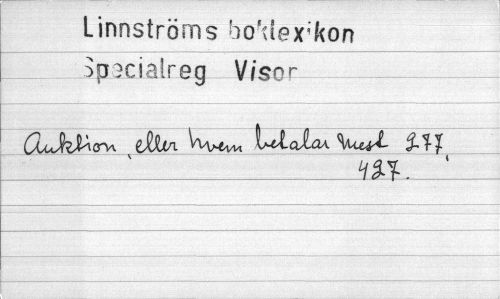 Linnströms boklexikon
Specialreg Visor
Auktion, eller hvem betalar mest 277,
427.